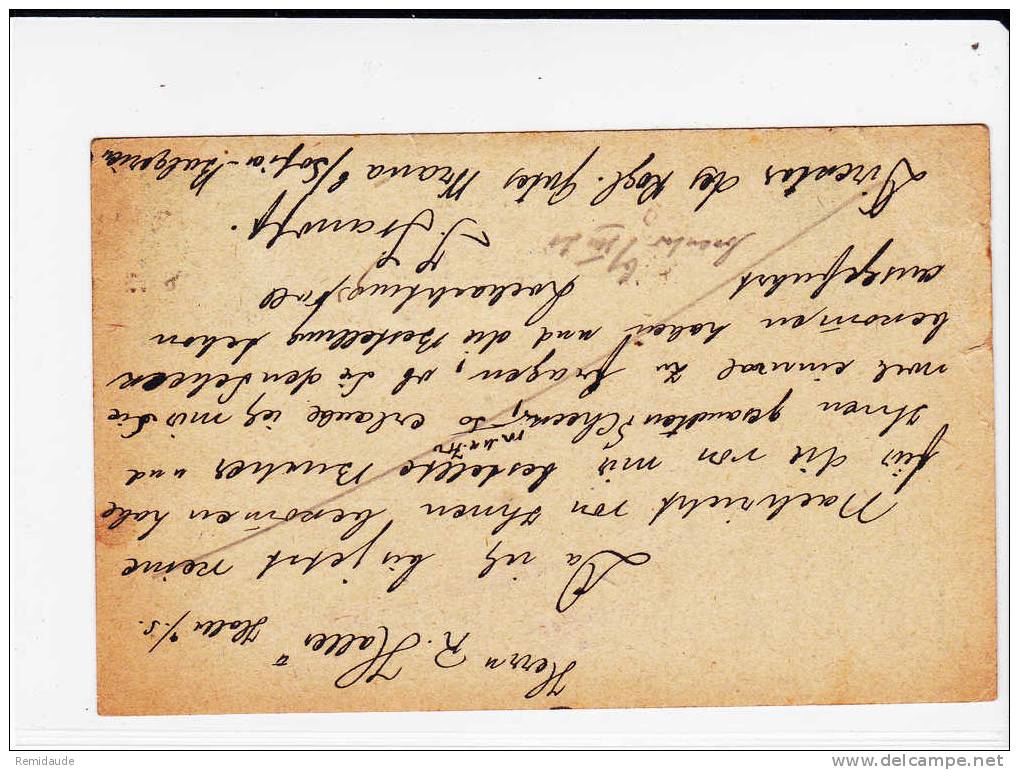 Herrn R. Haller
Halle a/S.
Da ich bis jetzt keine
Nachricht von Ihnen bekommen habe
für die von mir bestellte Bücher und
Ihnen gesandten Scheck, so erlaube ich mir Sie
noch einmal zu fragen, ob Sie den Scheck
bekommen haben und die Bestellung schon
ausgeführt
Hochachtungsvoll
Direktor des Kgl. Gutes Wrana b/Sofia-Bulgarien
Remidaude
www.delcampe.net